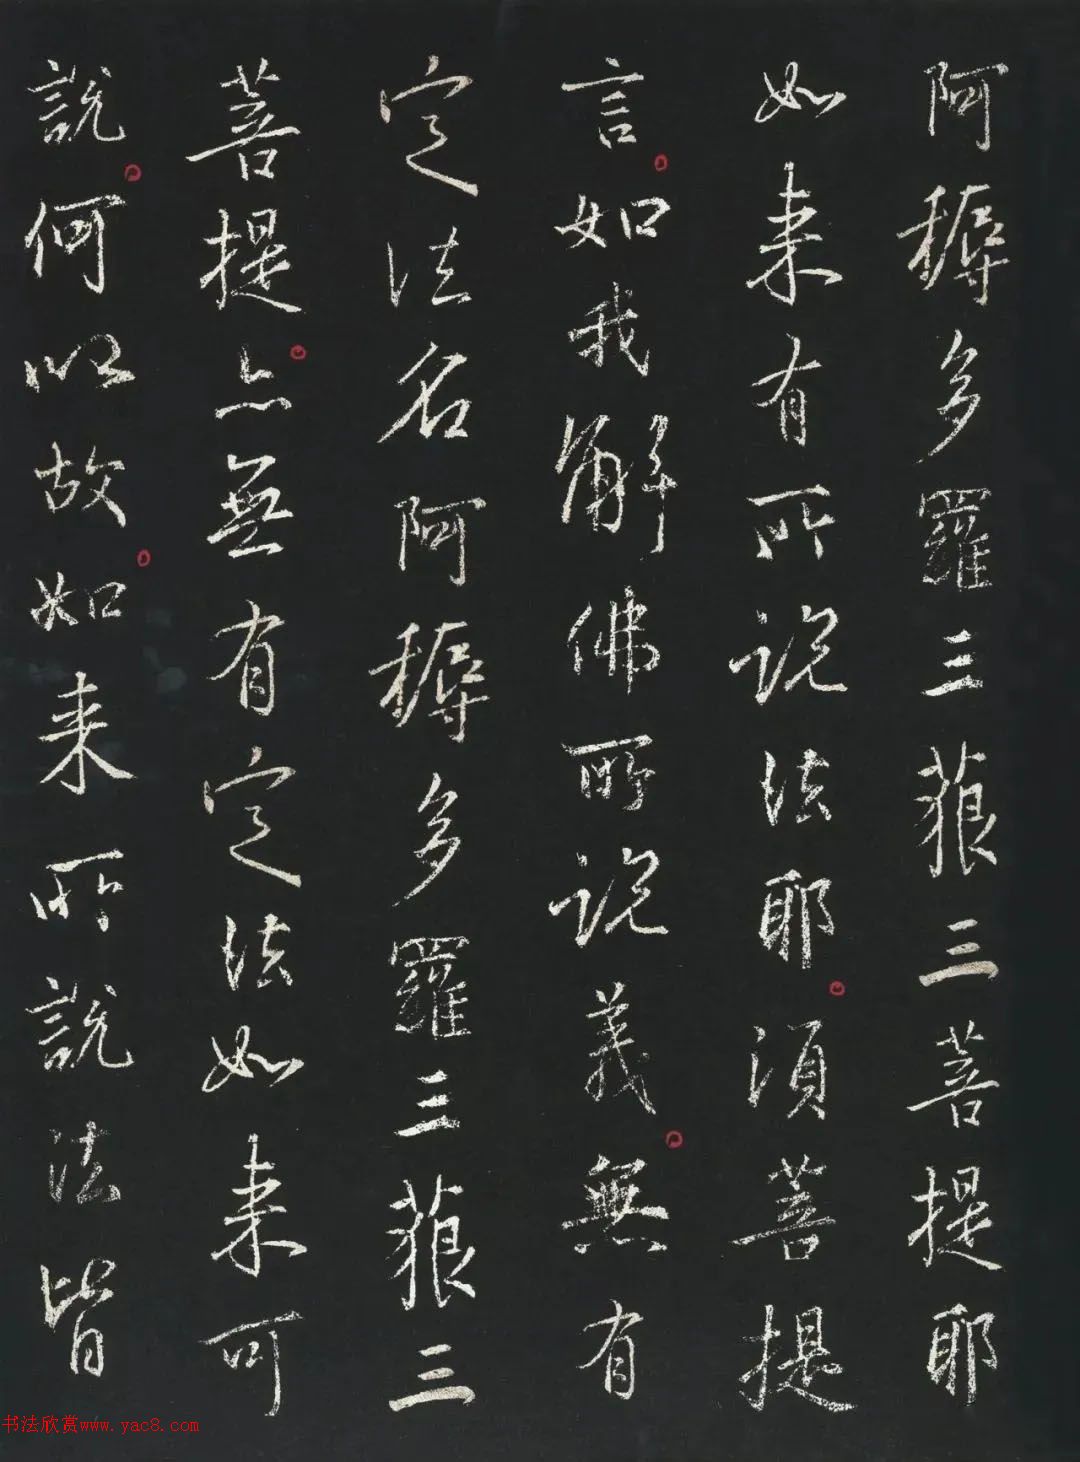 阿耨多羅三藐三菩提耶
如来有所説法耶須菩提
言如我解佛所説義無有
定法名阿耨多羅三藐三
菩提亦無有定法如来可
說何以故如来所說法皆
书法欣赏www.yac8.com